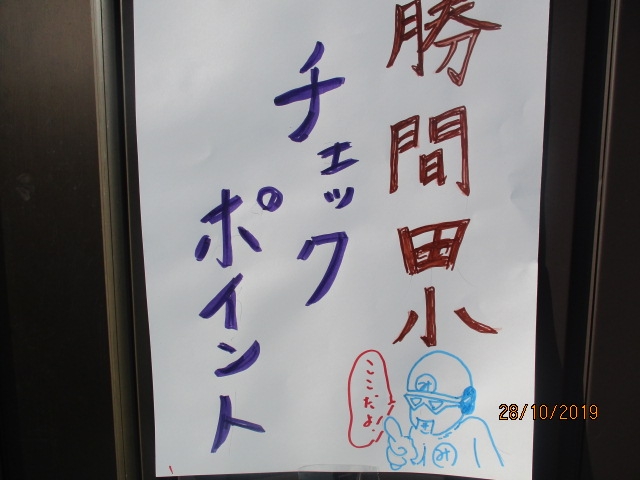 勝間田小
チェック
ポイント
ここだよ!
28/10/2019